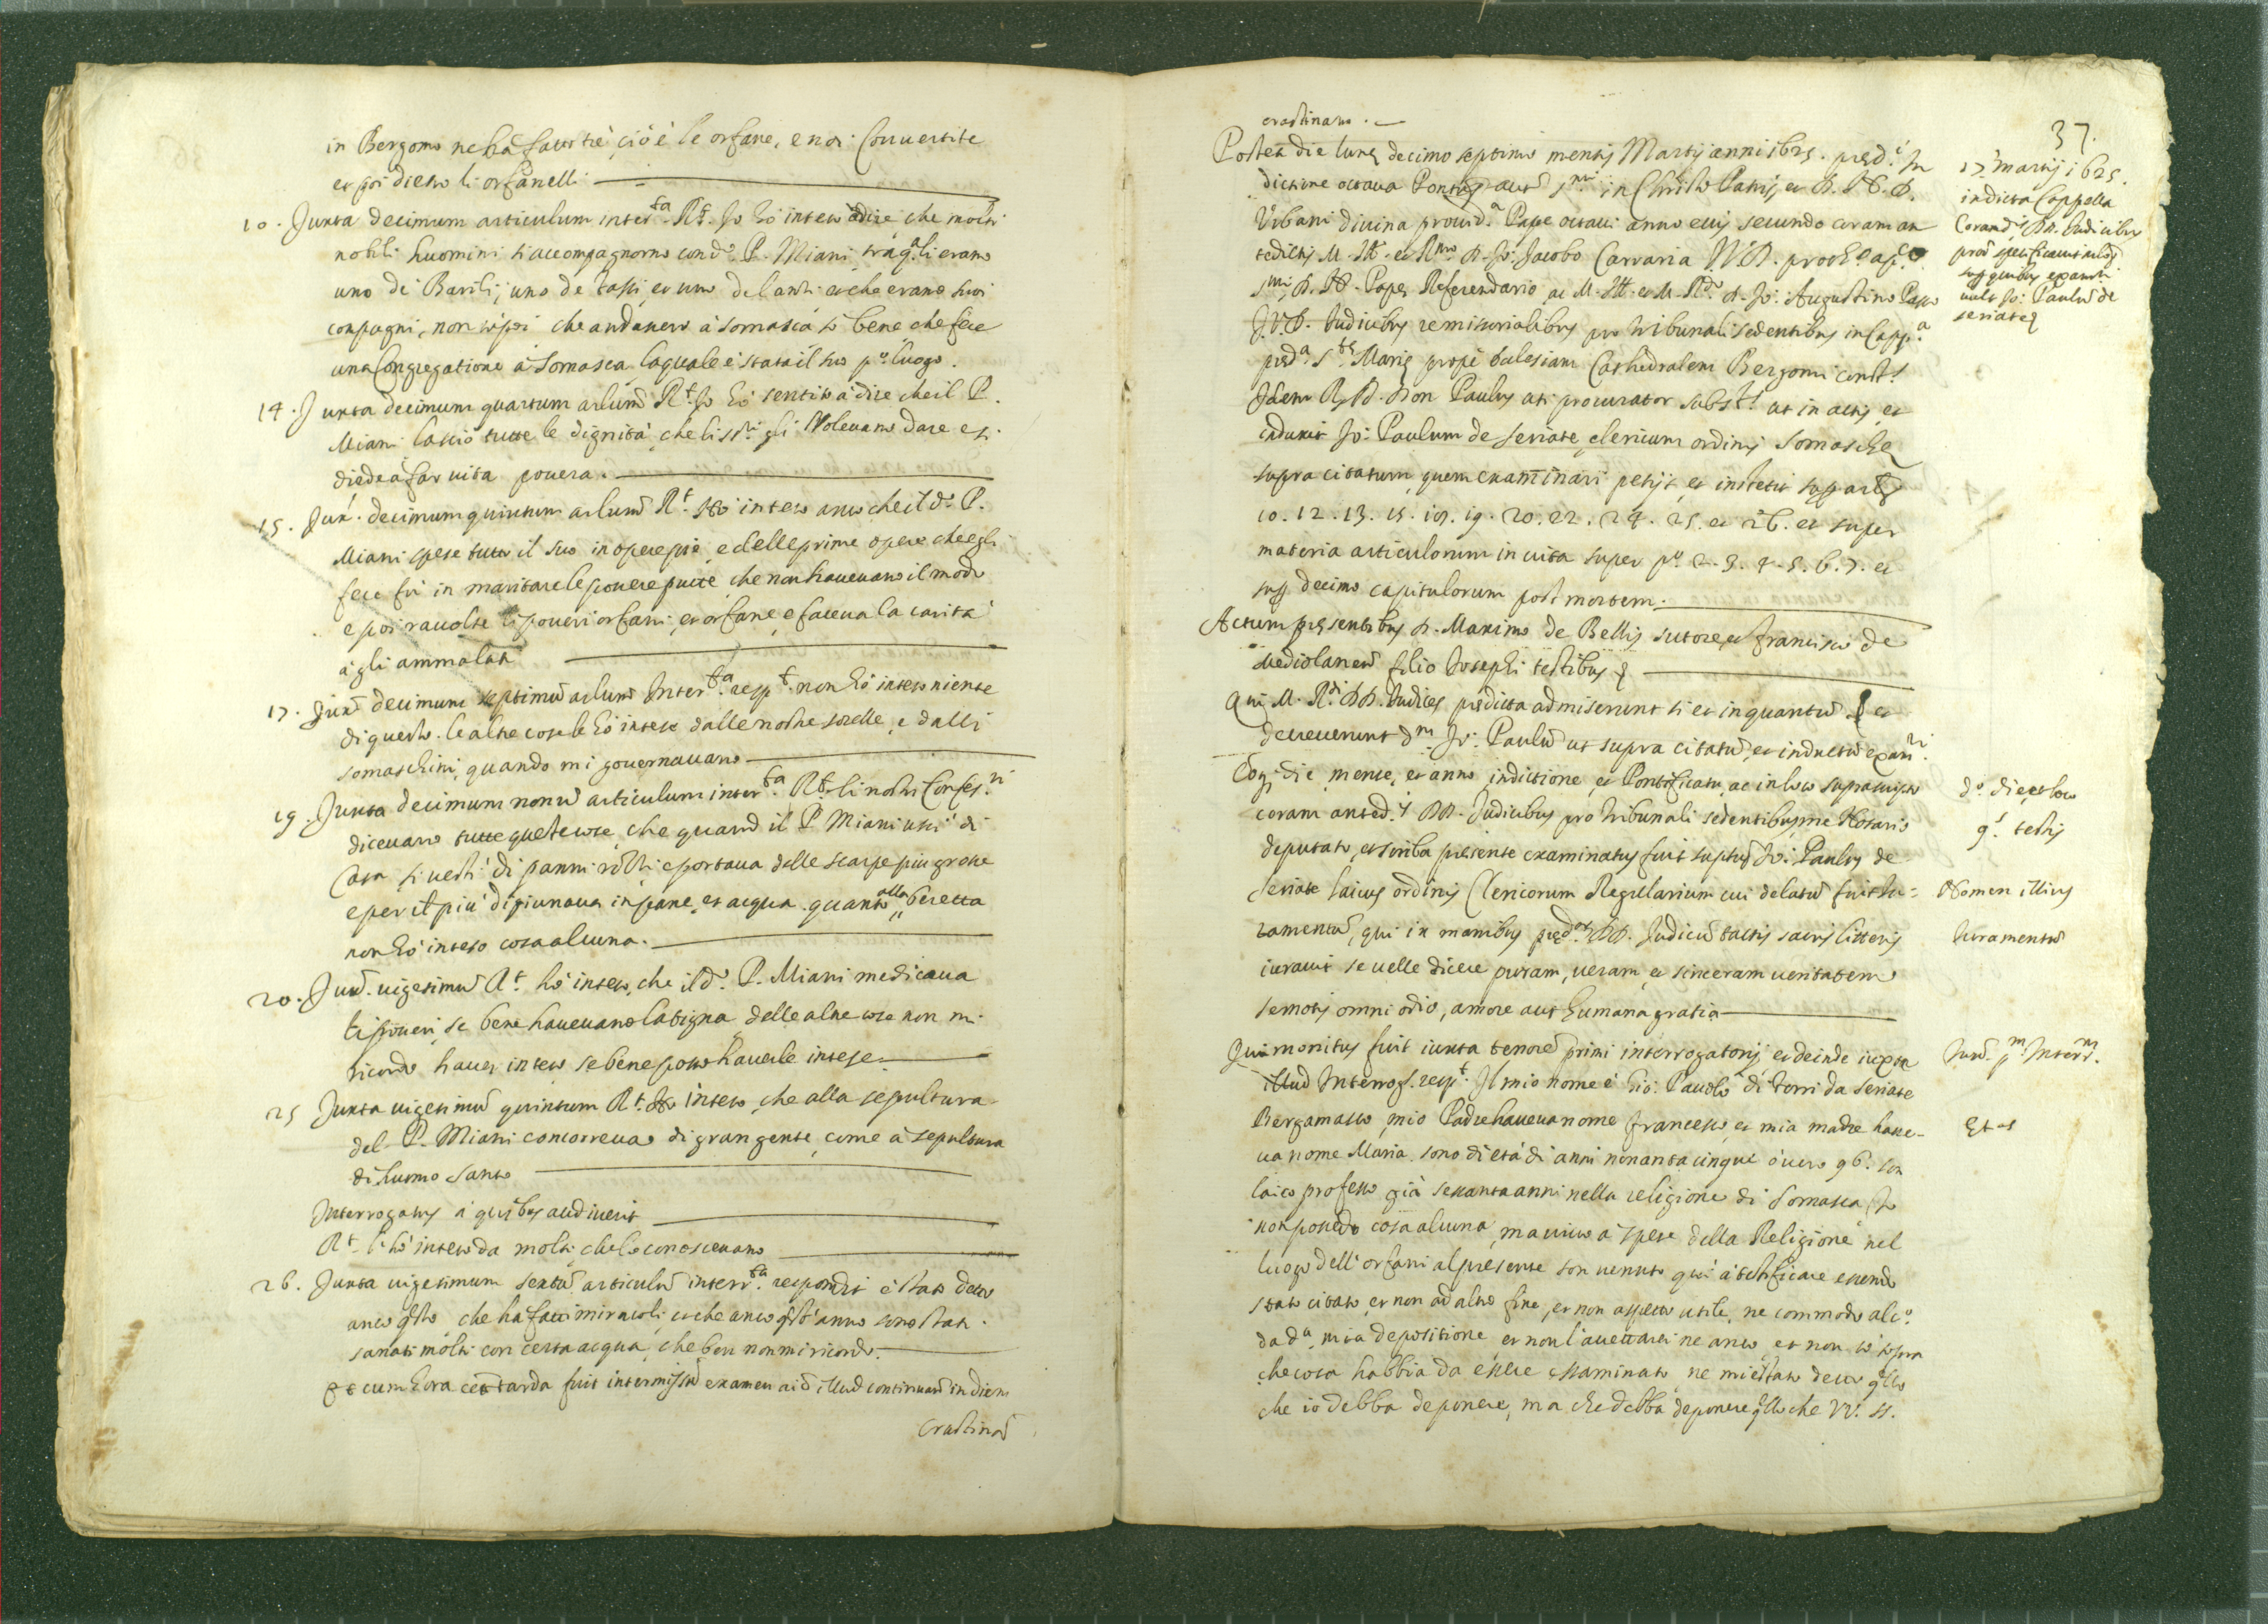 in Bergomo ne ha fatto trè, ciò è le orfane, e noi Convertite
et poi dietro li orfanelli
10. Juxta decimum articulum interr.ta R.t Jo hò inteso à dire che molti
nobili huomini s'accompagnorno con d.o P. Miani, trà q.li erano
uno di Barili, uno de Tassi, et uno del anti et che erano suoi
compagni, non sò poi che andavero à Somasca sò bene che fece
una Congregatione à Somasca, laquale è stata il suo p.o luogo.
14. Juxta decimum quartum arlum R.t Jo hò sentito à dire che il P.
Miani lassiò tutte le dignità, che li SS.ri gli Volevano dare et si
diede à far vita povera.
15. Jux. decimum quintum arlum R.t Hò inteso anco che il d.o P.
Miani spese tutto il suo in opere pie, e delle prime opere che egli
fece fù in maritare le povere putte, che non havevano il modo
e poi ravolse li poveri orfani, et orfane, e faceva la carità
à gli ammalati
17. Jux. decimum septimũ arlum Inter.ta resp.t non hò inteso niente
di questo. le altre cose le hò intese dalle nostre sorelle, e dalli
somaschini, quando mi governavano
19. Juxta decimum nonũ articulum inter.ta R.t li nostri Confes.ri
dicevano tutte queste cose, che quando il P. Miani uscì di
Casa si vestì di panni rotti e portava delle scarpe più grosse
e per il più digiunava in pane, et acqua. quanto alla beretta
non hò inteso cosa alcuna.
20. Jux. vigesimũ R.t hò inteso, che il d.o P. Miani medicava
li poveri, se bene havevano la tigna, delle altre cose non mi
ricordo haver inteso se bene posso haverle intese.
25 Juxta vigesimũ quintum R.t Hò inteso, che alla sepultura
del P. Miani concorreva di gran gente, come à sepultura
di huomo santo
Interrogatus à quibus audiverit
R.t l'hò inteso da molti che lo conoscevano
26. Juxta vigesimum sextũ articulũ interr.ta respondit è stato detto
anco q.sto, che ha fatti miracoli, et che anco q.sto anno sono stati
sanati molti con certa acqua, che ben non mi ricordo.
Et cum hora tarda fuit intermissũ examen illud continuand in diem
Crastinã
crastinam.
37.
Postea die lunę decimo septimo mensis Martij anni 1625. pręd.i In
dictione octava Pontus aut S.mi in Christo Patris et D. N. D.
Urbani divina provid.a Papę octavi anno eius secundo coram an
tedictis M. Ill. et R.mo D. Jo: Jacobo Carraria I.V.D. proth.o ap.co
S.mi D. N. Papę Referendario ac M. Ill. et M. R.do D. Jo: Augustino Passo
I.V.D. Iudicibus remissorialibus pro tribunali sedentibus in Capp.a
pręd.a S.tę Marię prope Ecclesiam Cathedralem Bergomi const.s
Idem R. D. Don Paulus uti procurator subst.s ut in actis, et
induxit Jo: Paulum de Seriate clericum ordinis Somaschę
supra citatum, quem examinari petijt, et institit sup art.s
10. 12. 13. 15. 19. 20. 22. 24. 25. et 26. et super
materia articulorum in vita super p.o 2. 3. 4. 5. 6. 7. et
sup decimo capitulorum post mortem.
Actum pręsentibus D. Maximo de Bellis sutore, et Francisco de
Mediolanen filio Iosephi testibus
Qui M. R.di DD. Iudices prędicta admiserunt si et in quantũ et
decreverunt d.m Jo: Paulũ ut supra citatũ, et inductũ exam.ri
Eoq. die, mense, et anno, indictione, et Pontificatu, ac in loco suprascripto
coram anted.is DD. Iudicibus pro tribunali sedentibus, me Notario
deputato, et scriba presente examinatus fuit suptus Jo: Paulus de
Seriate laicus ordinis Clericorum Regularium cui delatũ fuit Iu-
ramentũ, qui in manibus pręd.or DD. Iudicũ tactis sacris litteris
iuravit se velle dicere puram, veram, et sinceram veritatem
semotis omni odio, amore aut humana gratia
Qui monitus fuit iuxta tenorẽ primi interrogatorij et deinde iuxta
illud Interrog. resp.t Il mio nome è Gio: Pauolo di Torri da Seriate
Bergamasco, mio Padre haveva nome Francesco, et mia madre have-
va nome Maria. sono di età di anni nonanta cinque ò vero 96. son
laico professo già sessanta anni nella religione di Somasca Jo
non possedo cosa alcuna, ma vivo à spese della Religione nel
luogo dell'orfani al presente son venuto quì à testificare essendo
stato citato, et non ad altro fine, et non aspetto utile, ne commodo alc.o
da d.a mia depositione et non l'accettarei ne anco et non sò sopra
che cosa habbia da essere essaminato ne mi è stato detto q.llo
che io debba deponere, ma che debba deponere q.llo che VV. SS.
17 Martij 1625.
in dicta Cappella
Coran d.is DD. Iudicibus
sup quibus examin
vult Jo: Paulũ de
seriate
d.o die, et loco
9.s testis
Nomen illius
Iuramentũ
Iux. p.m Interr.m
Etas